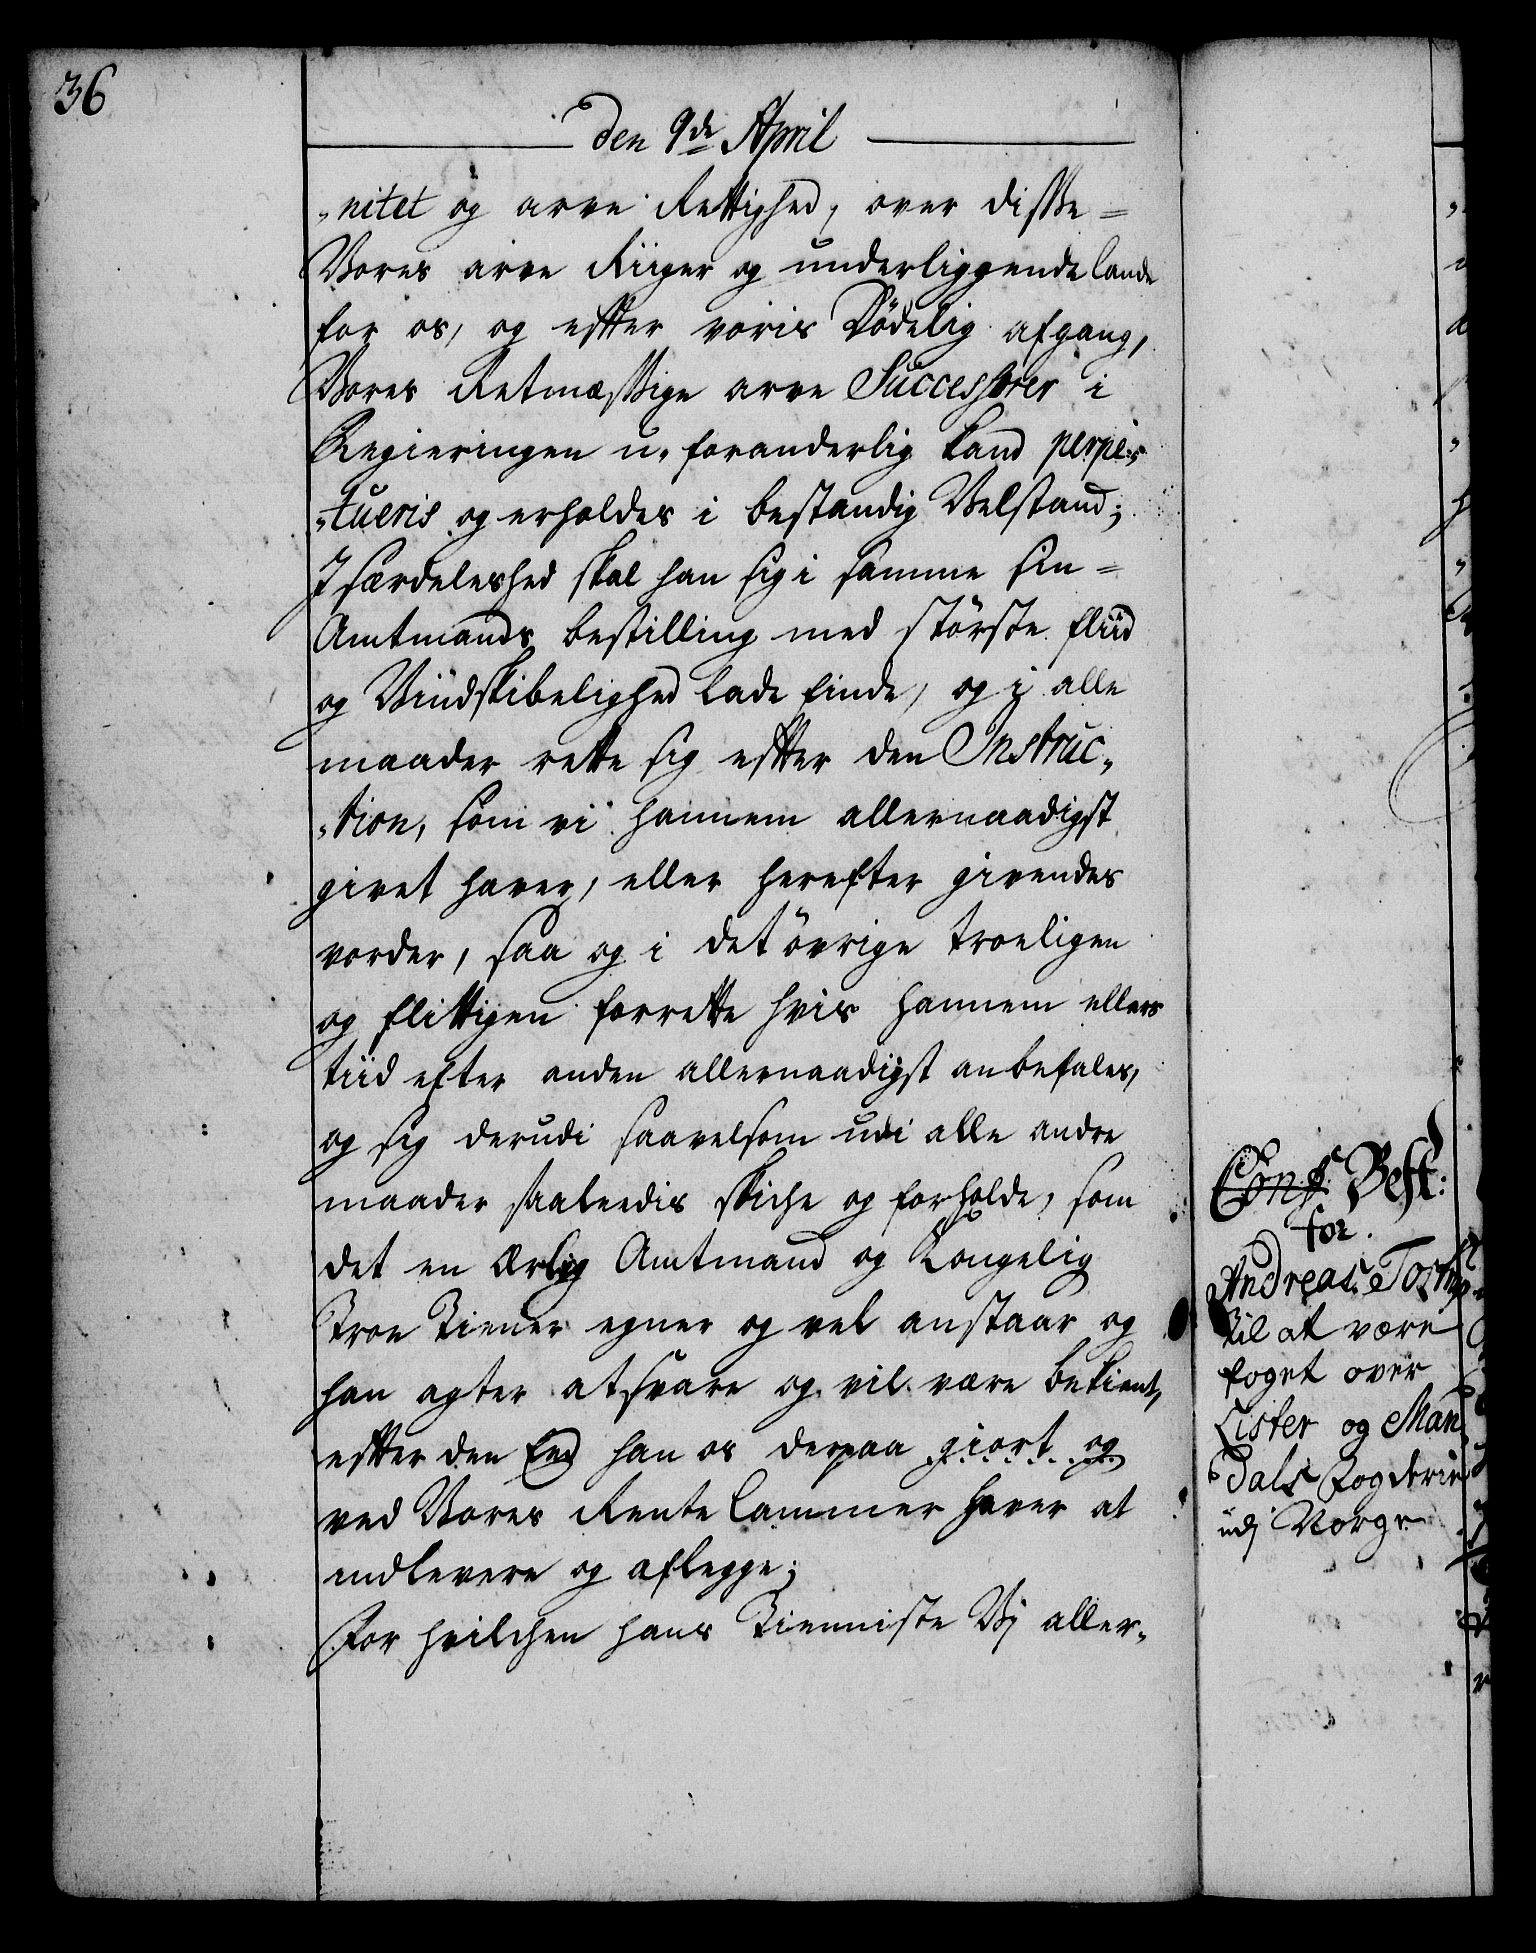 36
den 9de April
„nitet og arve Rettighed, over disse=
Vores arve Riiger og underliggende lande
for os, og effter voris Dödelig afgang,
Vores Retmæssige arve Successorer i
Regieringen u-foranderlig kand perpe„
„tueris og erholdes i bestandig Velstand;
I særdeleshed skal han sig i samme sin=
Amtmands bestilling med største fliid
og Viindskibelighed lade finde, og i alle
maader rette sig effter den Instruc„
„tion, som vi hannem allernaadigst
givet haver, eller herefter givendes
vorder, saa og i det øvrige troeligen
og flittigen forrette hvis hannem ellers
tiid efter anden allernaadigst anbefales,
og sig derudi saavelsom udi alle andre
maader saaledis skiche og forholde, som
det en Ærlig Amtmand og Kongelig
Troe Tiener egner og vel anstaar og
han agter at svare og vil være bekient,
effter den Eed han os derpaa giort og
ved Vores Rente Cammer haver at
indlevere og aflegge;
For hvilchen hans Tienniste Vj aller„
Conf Best:
for.
Andreas
til at være
foget over
Lister og Man
dals Fogderie
udj Norge